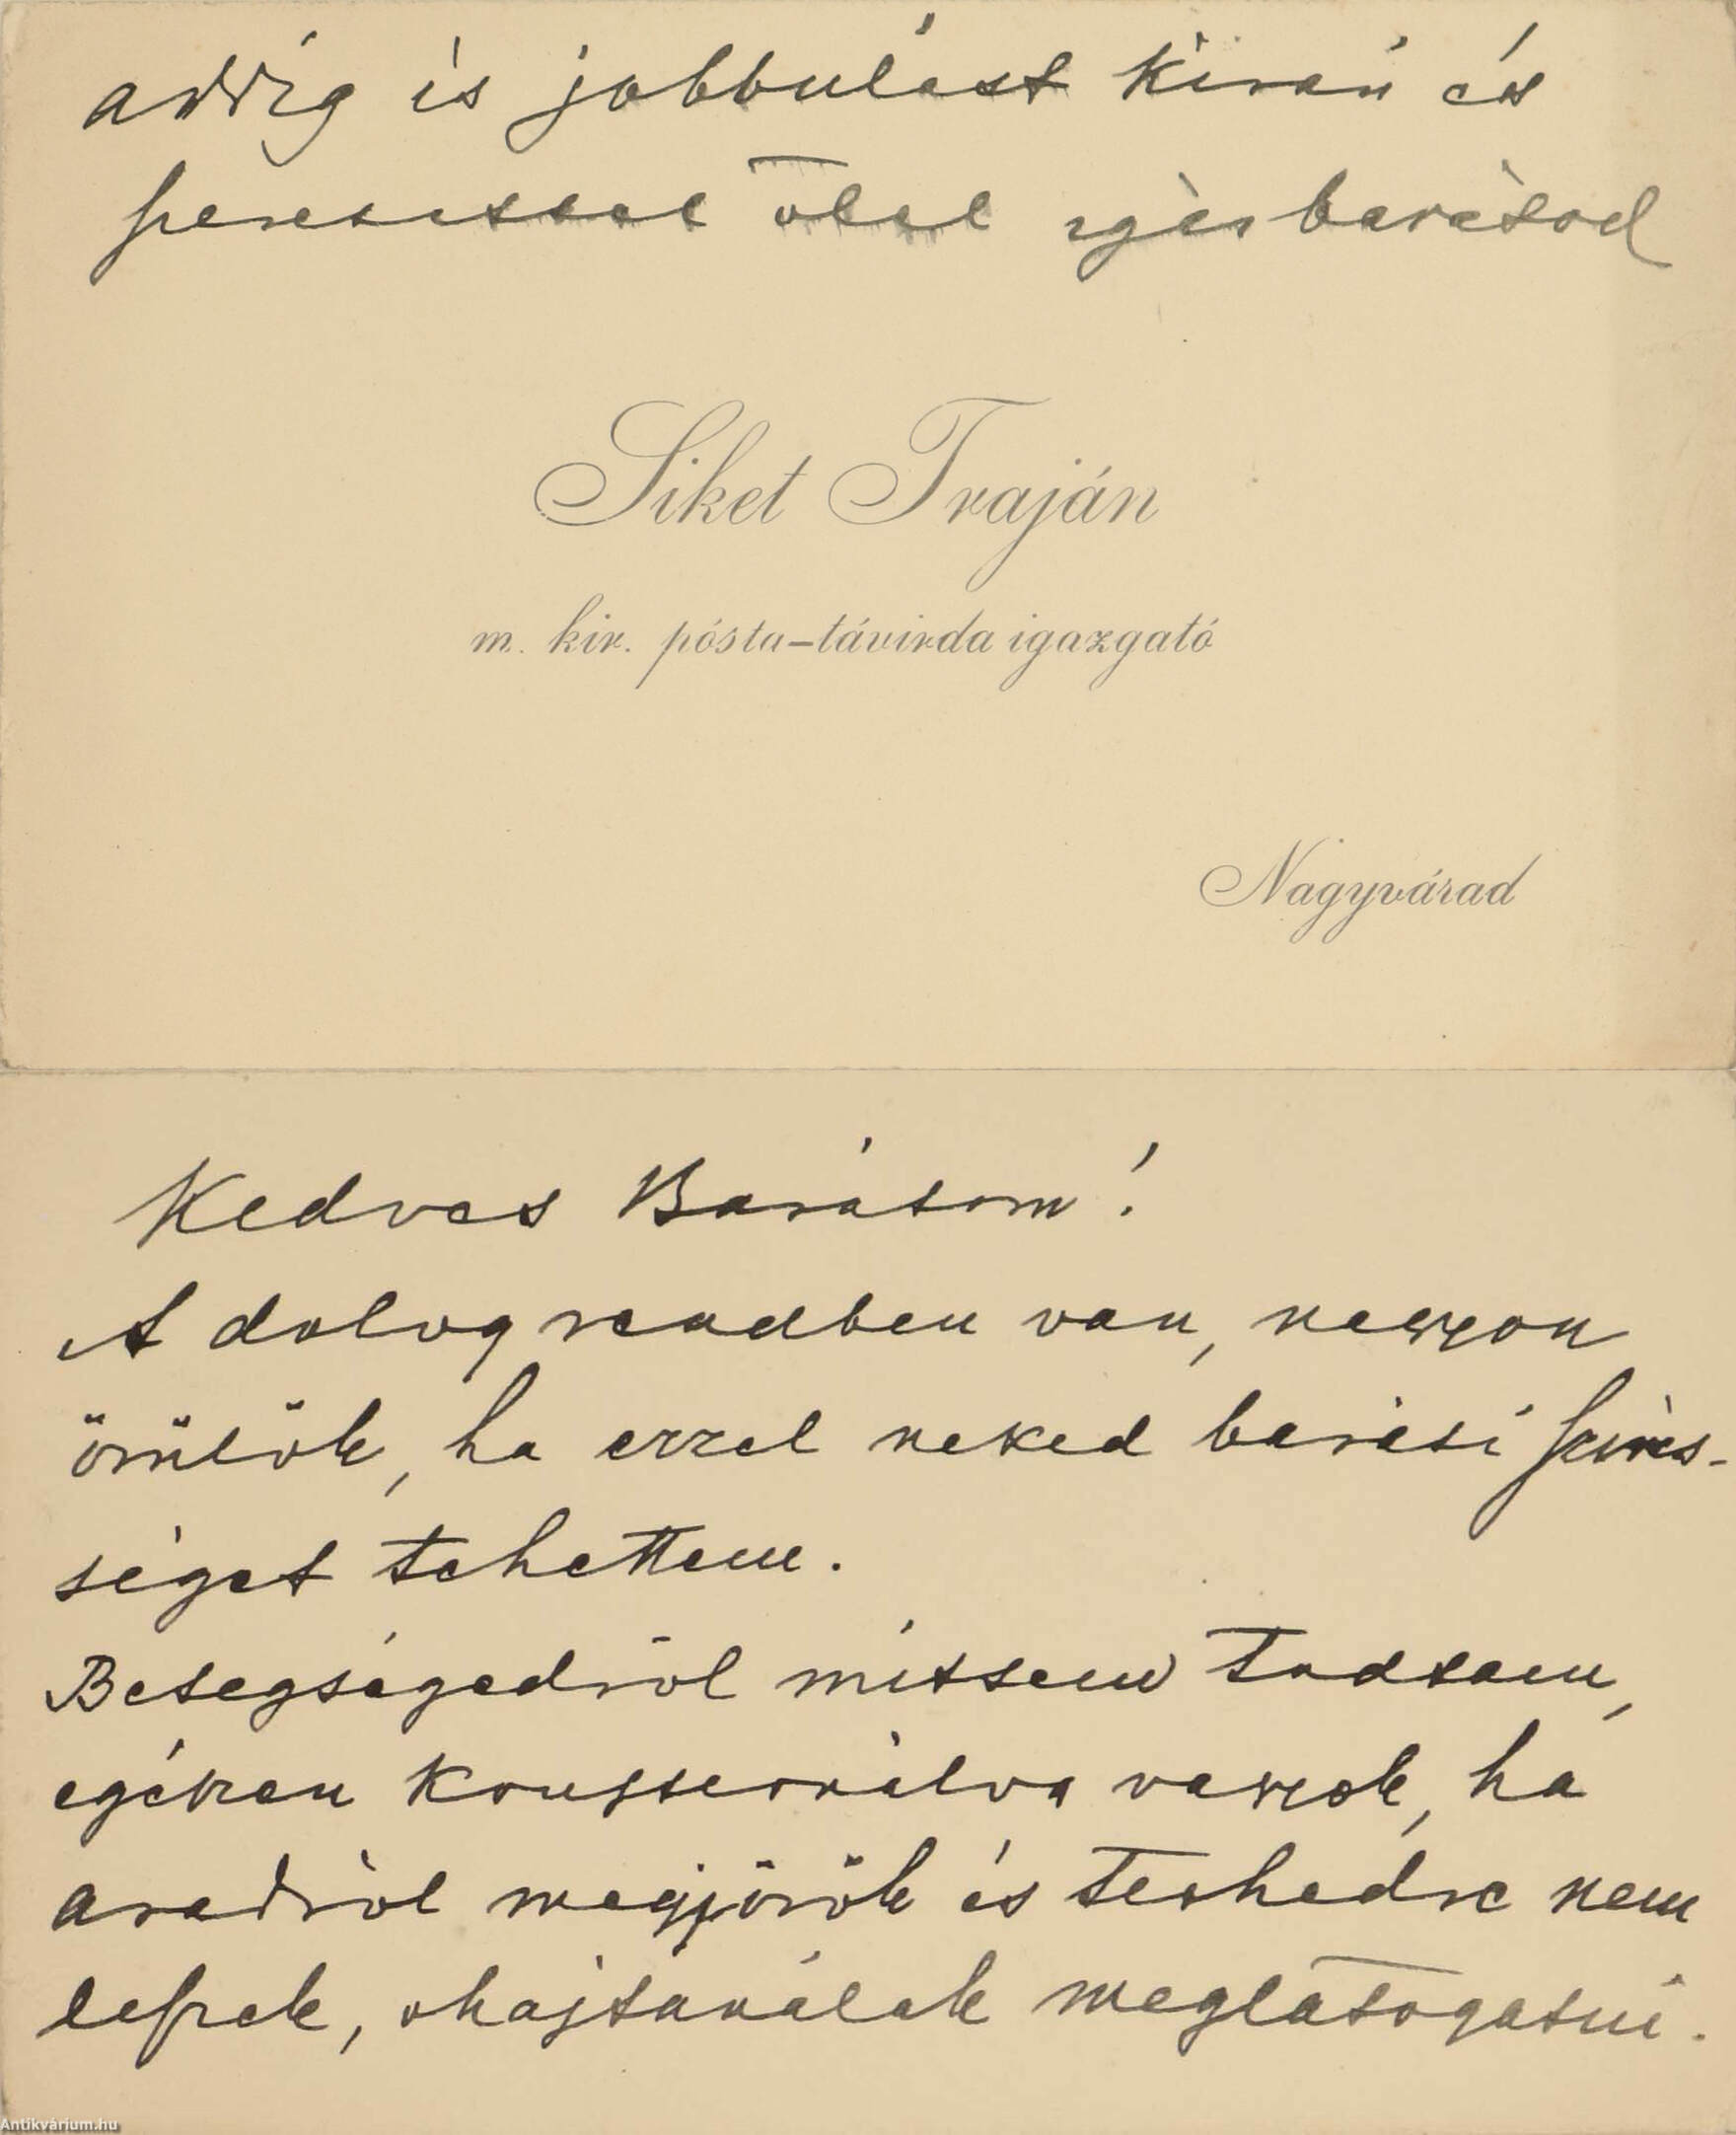 addig is jobbulást kiván és
szeretettel ölel igaz barátod
Siket Traján
m. kir. pósta-távirda igazgató
Nagyvárad
Kedves Barátom!
A dolog rendben van, nagyon
örülök, ha ezzel neked baráti szives-
séget tehettem.
Betegségedről mitsem tudtam,
egészen konsternálva vagyok, ha
aradról megjövök és terhedre nem
leszek, ohajtanálak meglátogatni.
Antikvárium.hu